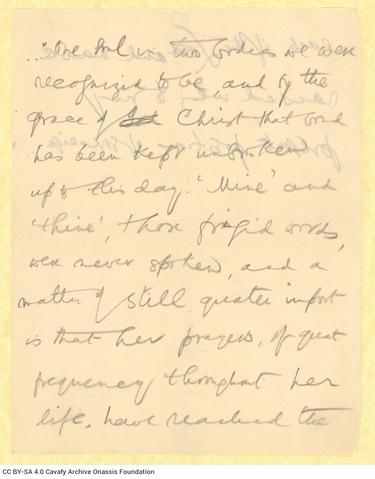 .. "One soul in two bodies we were
recognized to be, and by the
grace of God Christ that bond
has been kept unbroken
up to this day. 'Mine' and
'thine', those frigid words,
were never spoken, and a
matter of still greater import
is that her prayers, of great
frequency throughout her
life, have reached the
CC BY-SA 4.0 Cavafy Archive Onassis Foundation